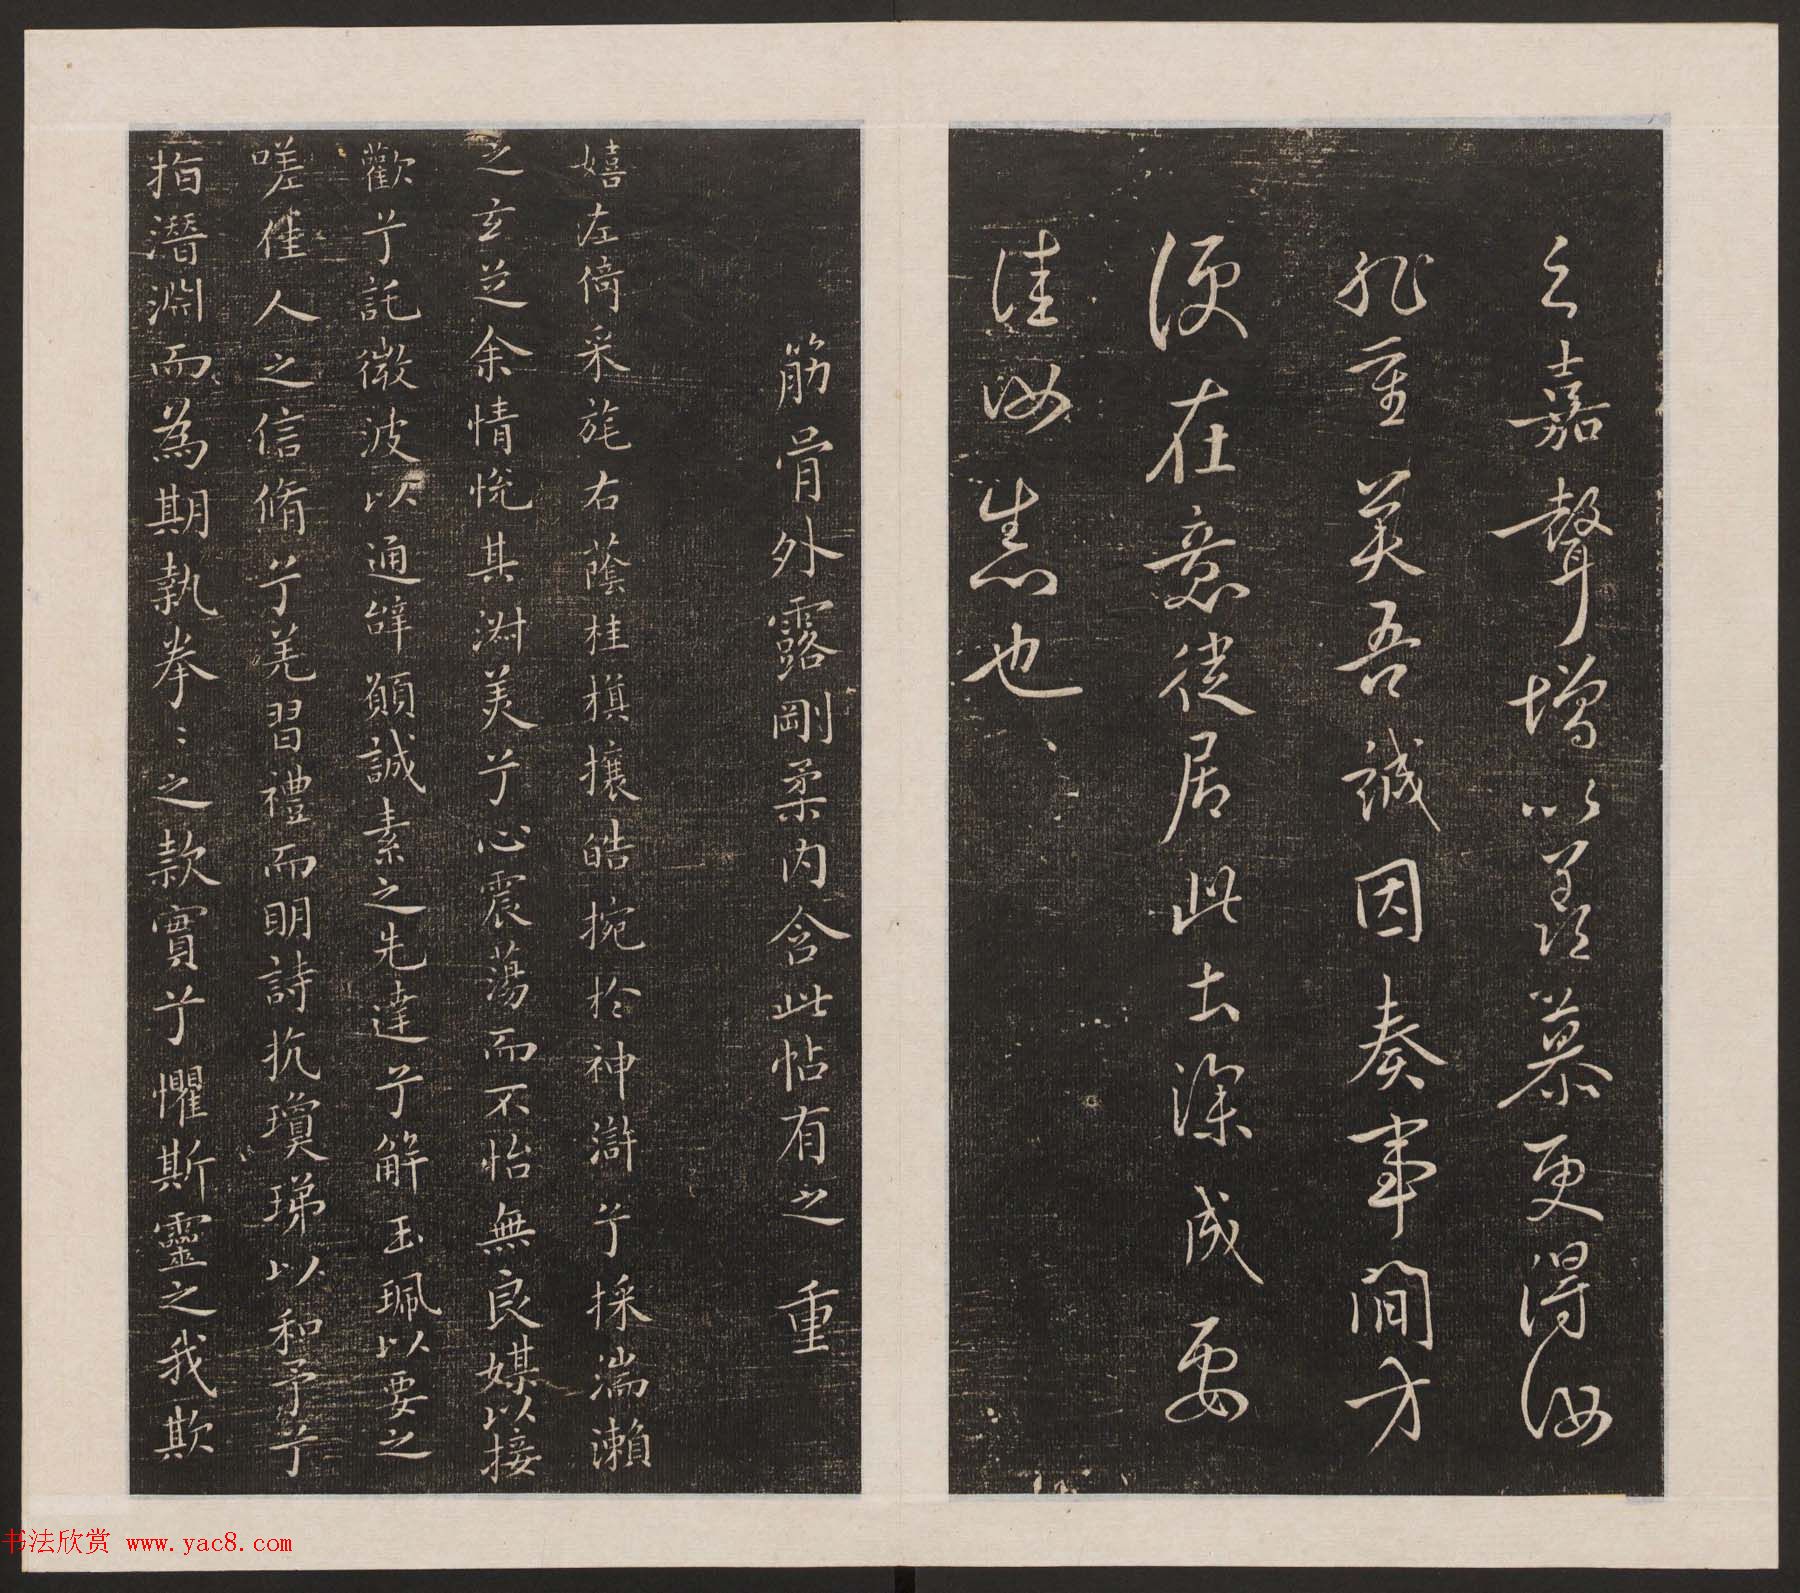 嘉聲增以羡慕更得汝
非章莫吾誠因奏事間方
便在意從居此土深成要
佳汝悉也
筋骨外露剛柔内含此帖有之 重
嬉左倚采旄右蔭桂旗攘皓捥於神滸兮採湍瀨
之玄芝余情悅其淑美兮心震蕩而不怡無良媒以接
歡兮託微波以通辭願誠素之先達兮解玉珮以要之
嗟佳人之信脩兮羌習禮而明詩抗瓊珶以和予兮
指潛淵而為期執拳〻之款實兮懼斯靈之我欺
书法欣赏 www.yac8.com